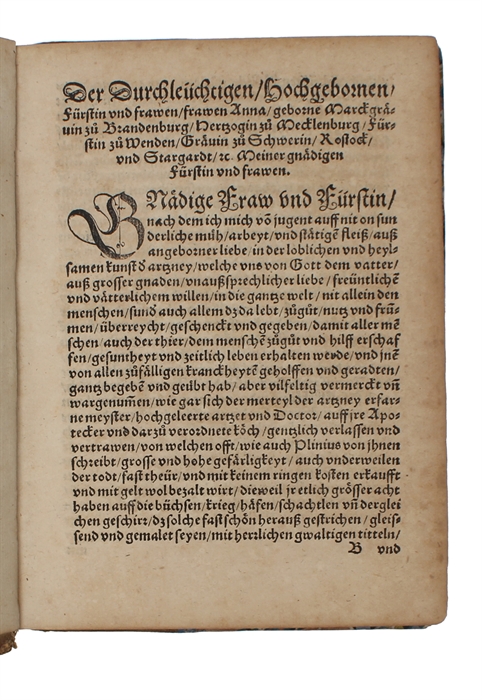 Der Durchleüchtigen/Hochgebornen/
Fürstin vnd frawen/frawen Anna/geborne Marckgrä-
uin zů Brandenburg/Hertzogin zů Mecklenburg/Für-
stin zů Wenden/Gräuin zů Schwerin/Rostock/
vnd Stargardt/ꝛc. Meiner gnädigen
Fürstin vnd frawen.
GNädige Fraw vnd Fürstin/
nach dem ich mich võ jugent auff nit on sun
derliche müh/arbeyt/vnd stätigẽ fleiß/auß
angeborner liebe/in der loblichen vnd heyl-
samen kunst d artzney/welche vns von Gott dem vatter/
auß grosser gnaden/vnaußsprechlicher liebe/freüntlichẽ
vnd vätterlichem willen/in die gantze welt/nit allein den
menschen/sund̃ auch allem dz da lebt/zůgůt/nutz vnd frũ-
men/überreycht/geschenckt vnd gegeben/damit aller mẽ
schen/auch der thier/dem menschẽ zůgůt vnd hilff erschaf
fen/gesuntheyt vnd zeitlich leben erhalten werde/vnd jnẽ
von allen zůfälligen kranckheytẽ geholffen vnd geradten/
gantz begebẽ vnd geübt hab/aber vilfeltig vermerckt vñ
wargenummẽ/wie gar sich der merteyl der artzney erfar-
ne meyster/hochgeleerte artzet vnd Doctor/auff jre Apo-
tecker vnd darzů verordnete köch/gentzlich verlassen vnd
vertrawen/von welchen offt/wie auch Plinius von jhnen
schreibt/grosse vnd hohe gefärligkeyt/auch vnderweilen
der todt/fast theür/vnd mit keinem ringen kosten erkaufft
vnd mit gelt wol bezalt wirt/dieweil jr etlich grösser acht
haben auff die büchsen/krieg/häfen/schachtlen vñ derglei
chen geschirr/dz solche fast schön herauß gestrichen/gleis-
send vnd gemalet seyen/mit herrlichen gwaltigen titteln/
B vnd